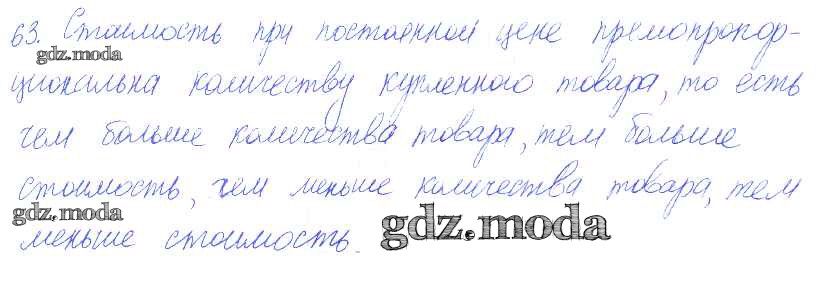 63. Стоимость при постоянной цене прямопропор-
gdz.moda
циональна количеству купленного товара, то есть
чем больше количества товара, тем больше
стоимость, чем меньше количества товара, тем
gdz.moda
меньше стоимость.
gdz.moda